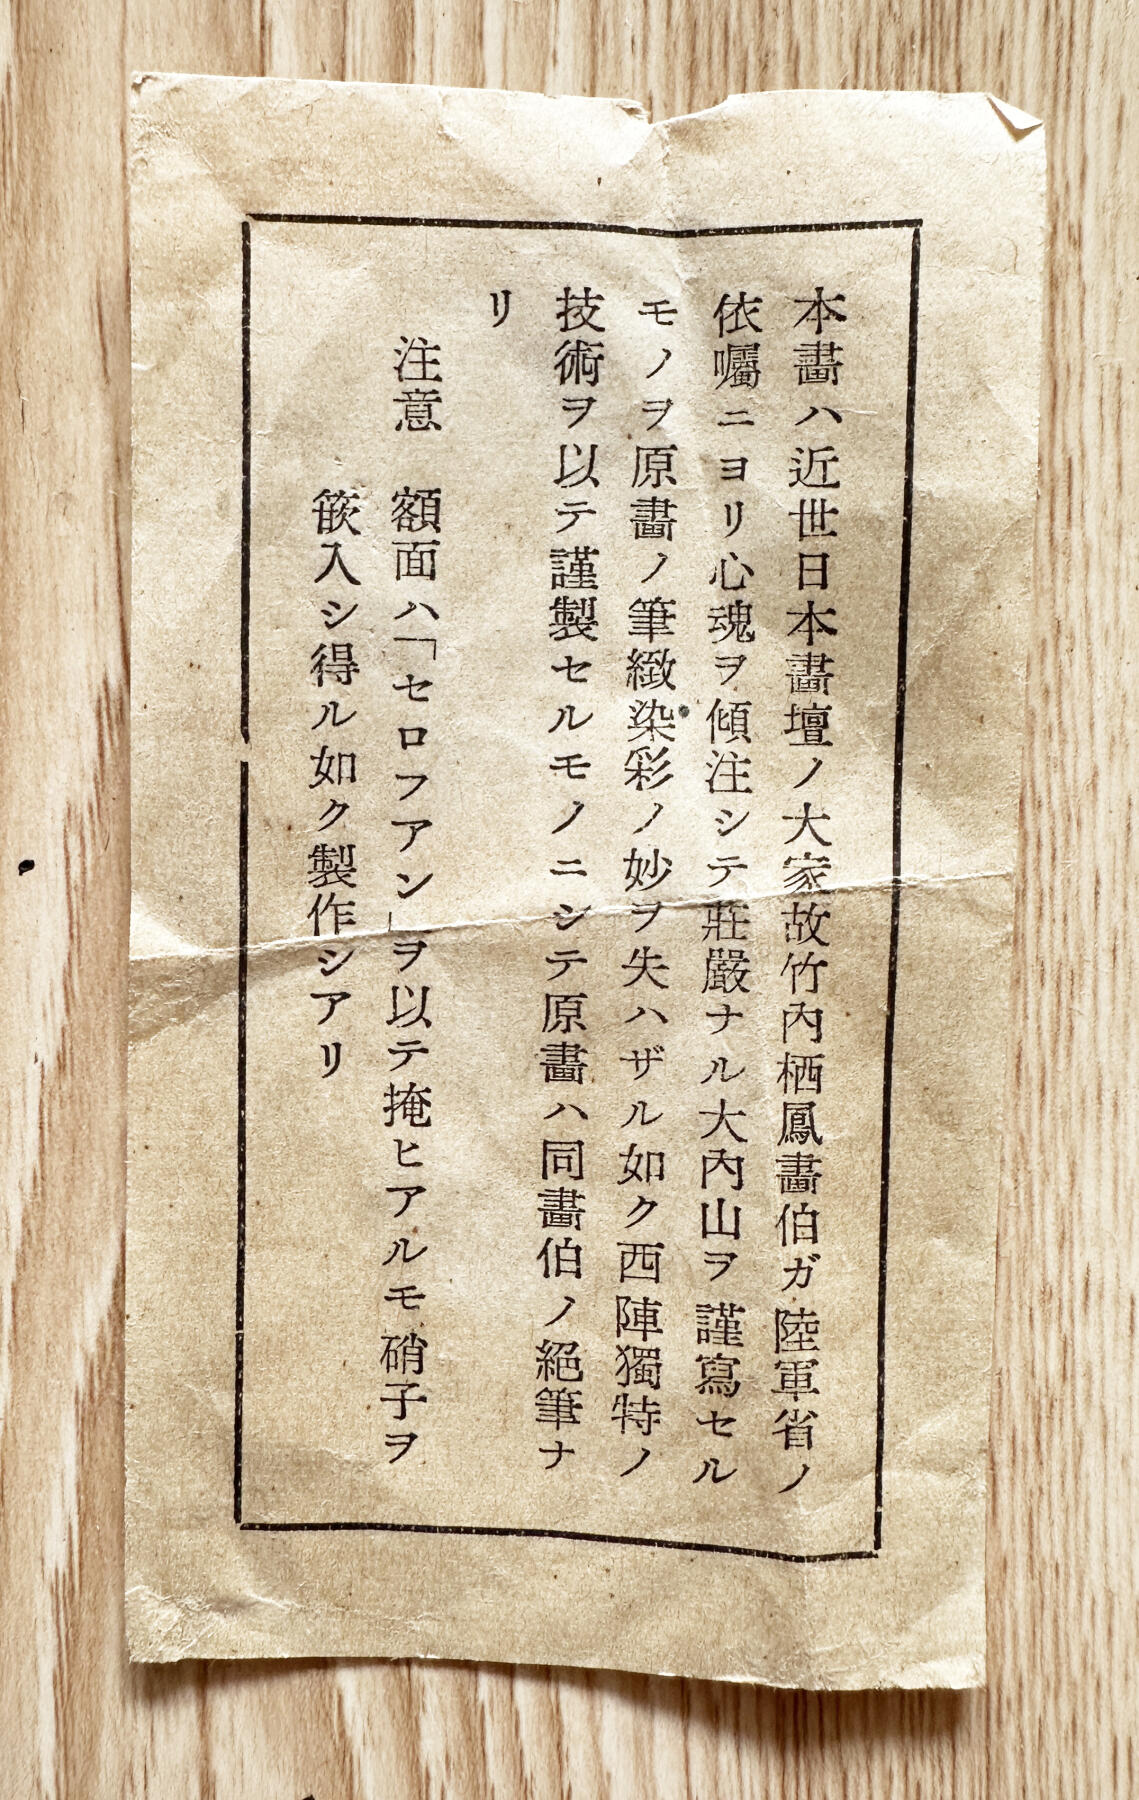 本畵ハ近世日本畵壇ノ大家故竹內栖鳳畵伯ガ陸軍省ノ
依囑ニヨリ心魂ヲ傾注シテ莊嚴ナル大內山ヲ謹寫セル
モノヲ原畵ノ筆緻染彩ノ妙ヲ失ハザル如ク西陣獨特ノ
技術ヲ以テ謹製セルモノニシテ原畵ハ同畵伯ノ絕筆ナ
リ
注意 額面ハ「セロフアン」ヲ以テ掩ヒアルモ硝子ヲ
嵌入シ得ル如ク製作シアリ